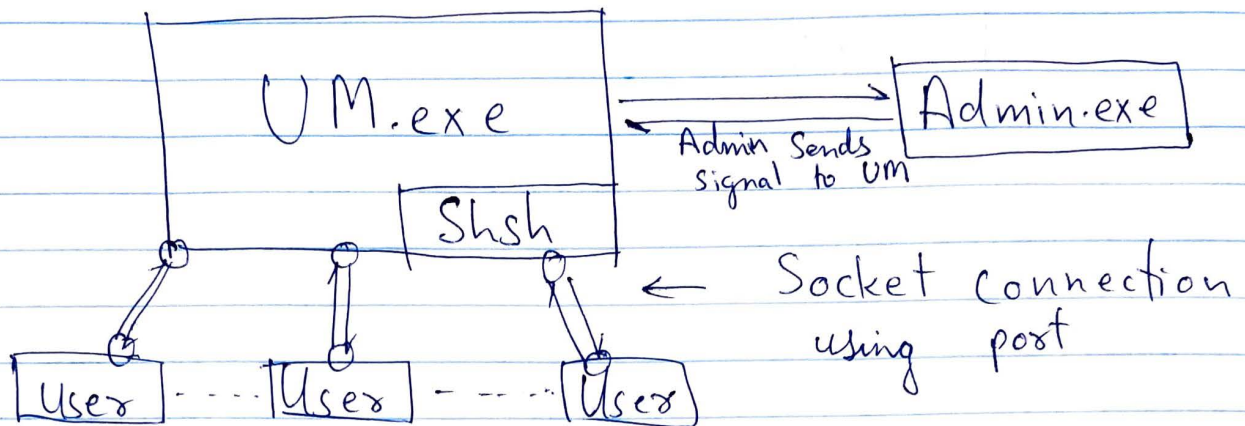 UM.exe
Admin.exe
Admin Sends
signal to UM
Shsh
← Socket connection
using port
User ..... User - --... User